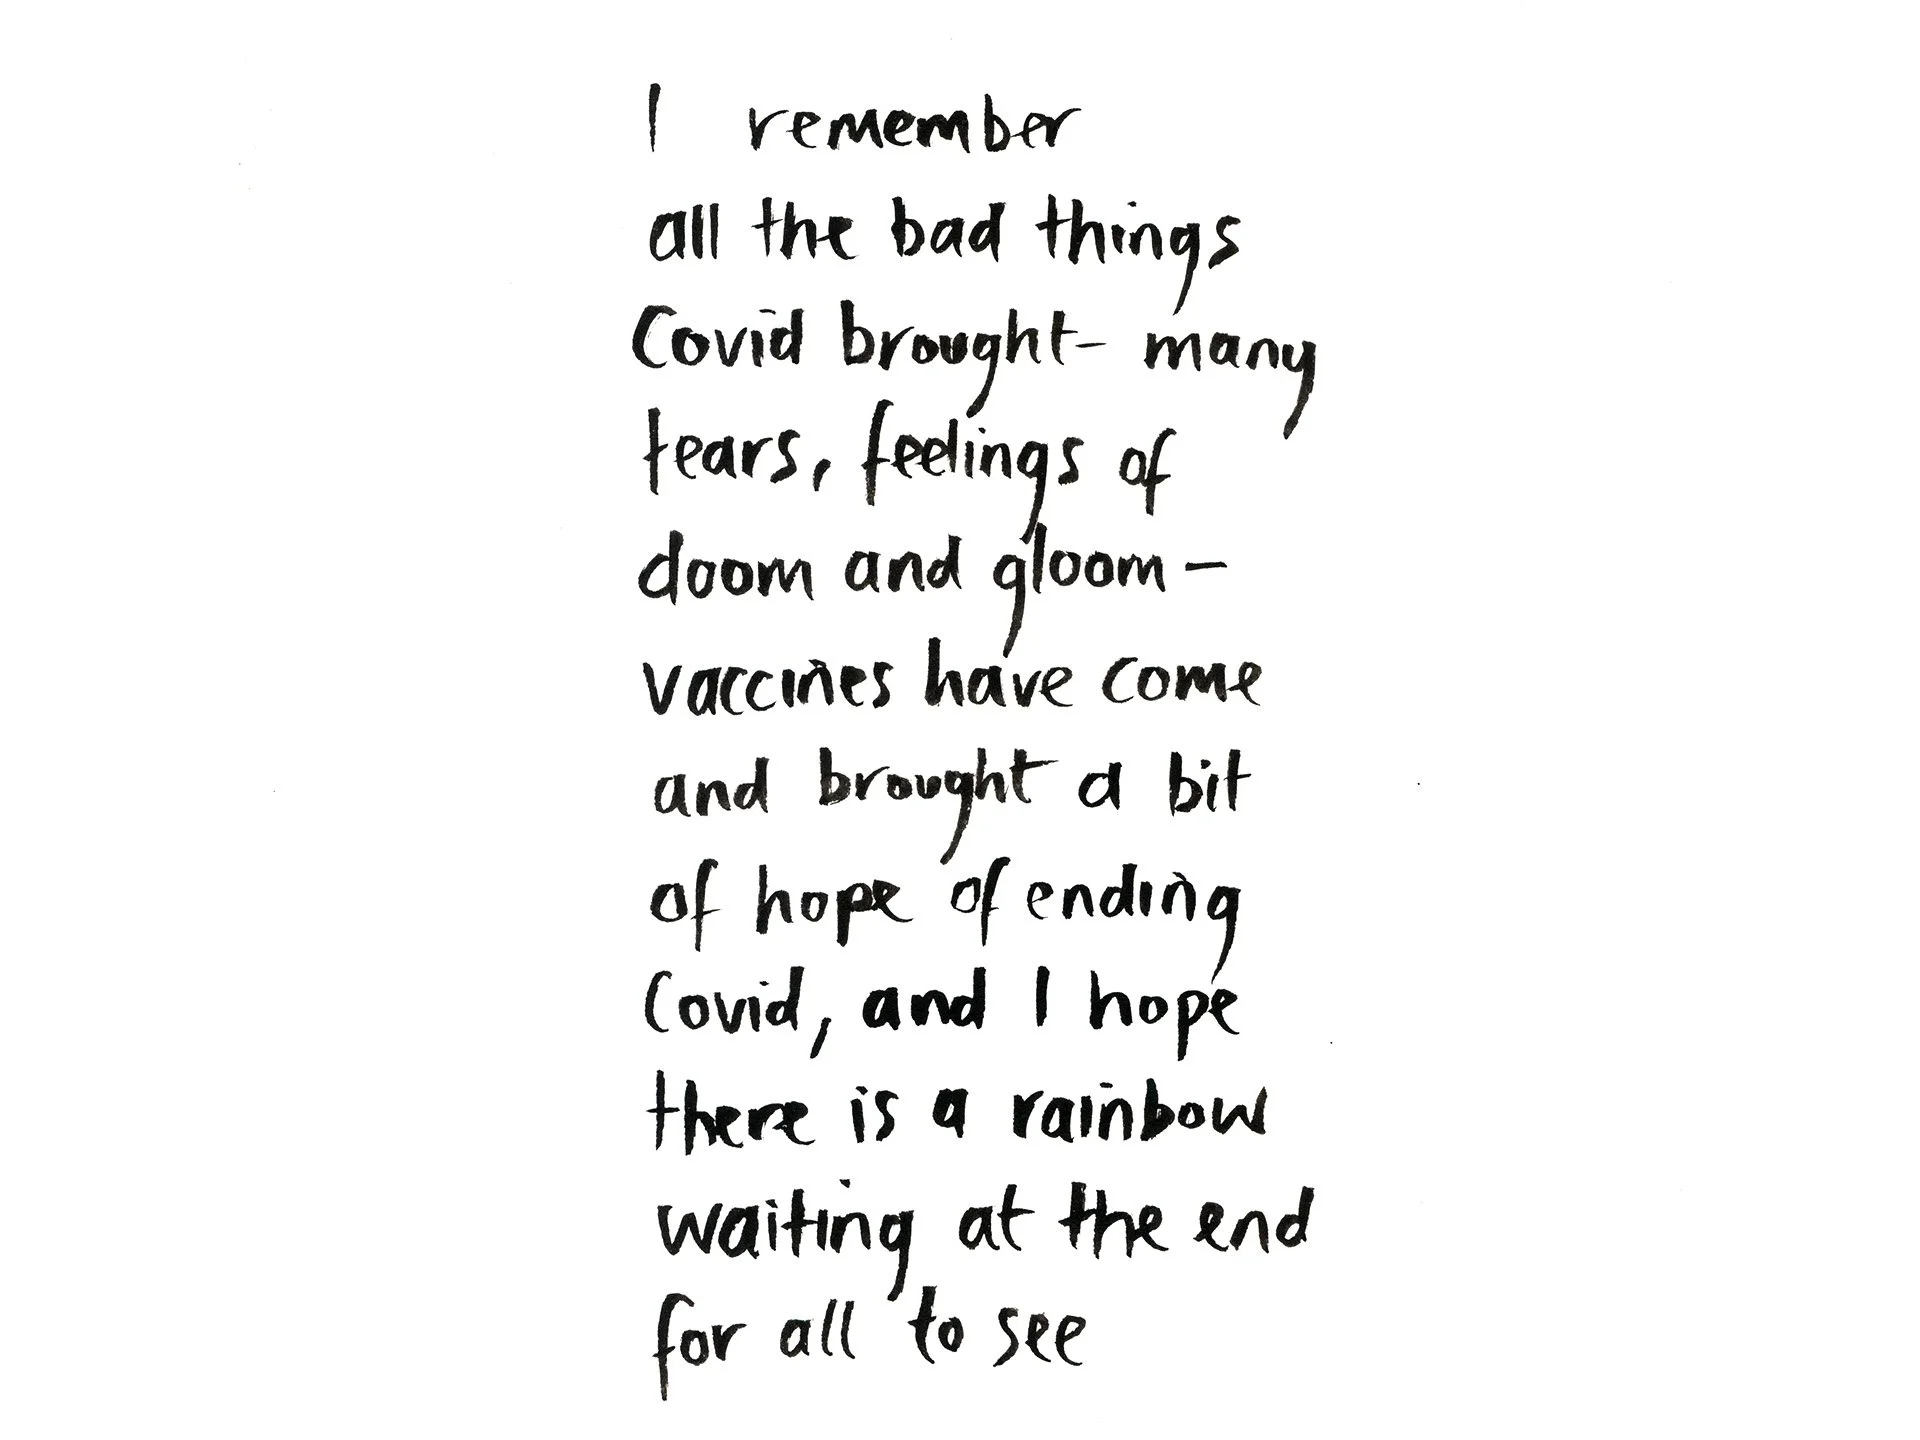 I remember
all the bad things
Covid brought- many
tears, feelings of
doom and gloom –
vaccines have come
and brought a bit
of hope of ending
Covid, and I hope
there is a rainbow
waiting at the end
for all to see